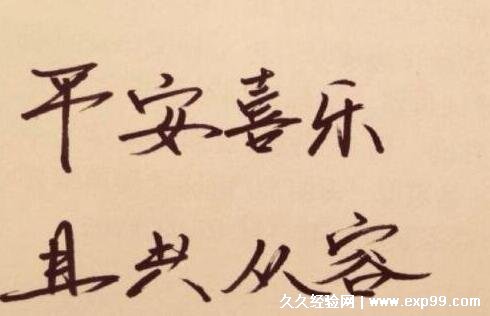 平安喜乐
且共从容
久久经验网 www.exp99.com